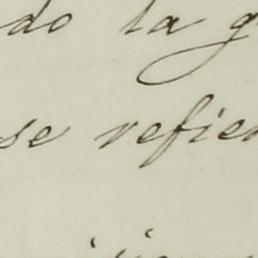 do la g
se refier